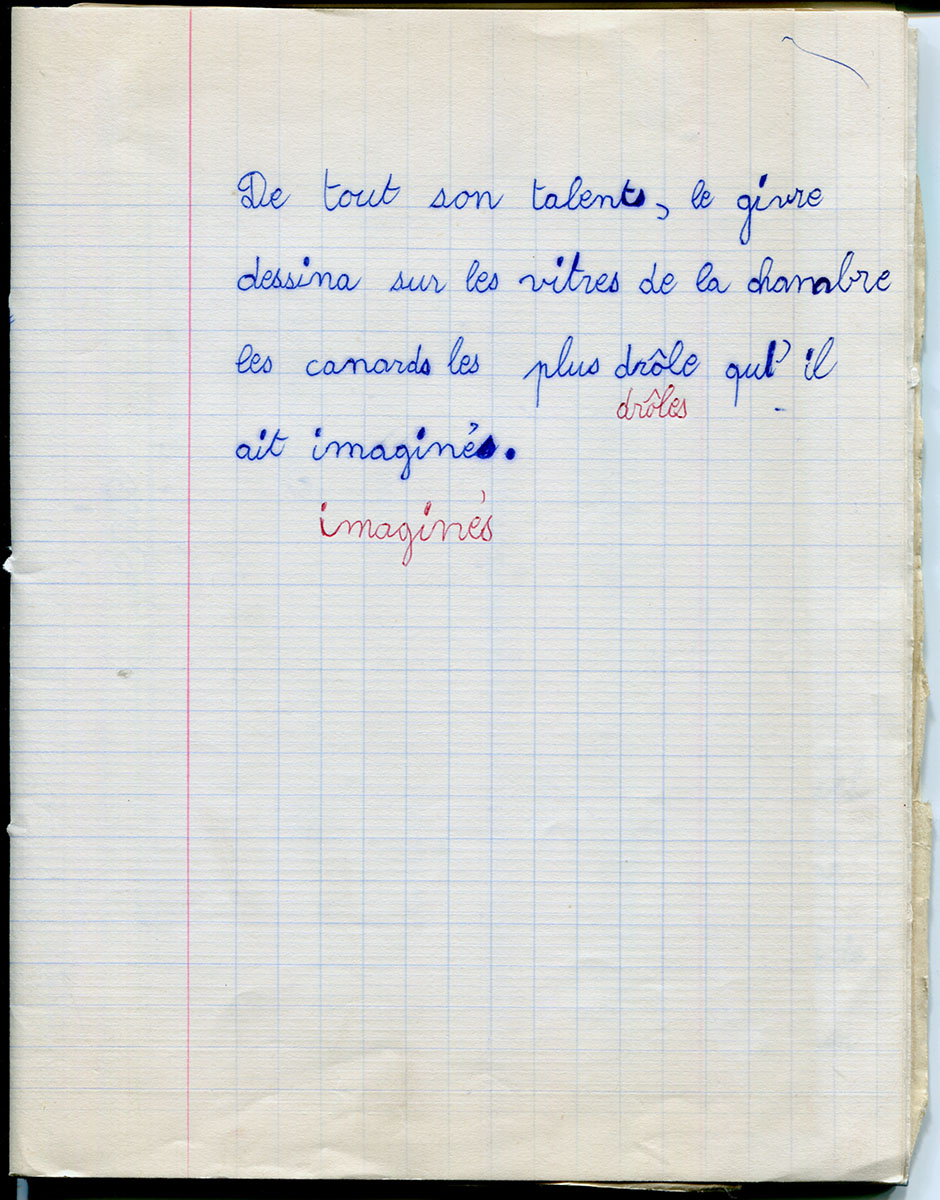 De tout son talent, le givre
dessina sur les vitres de la chambre
les canards les plus drôle qu'il
drôles
ait imaginés.
imaginés